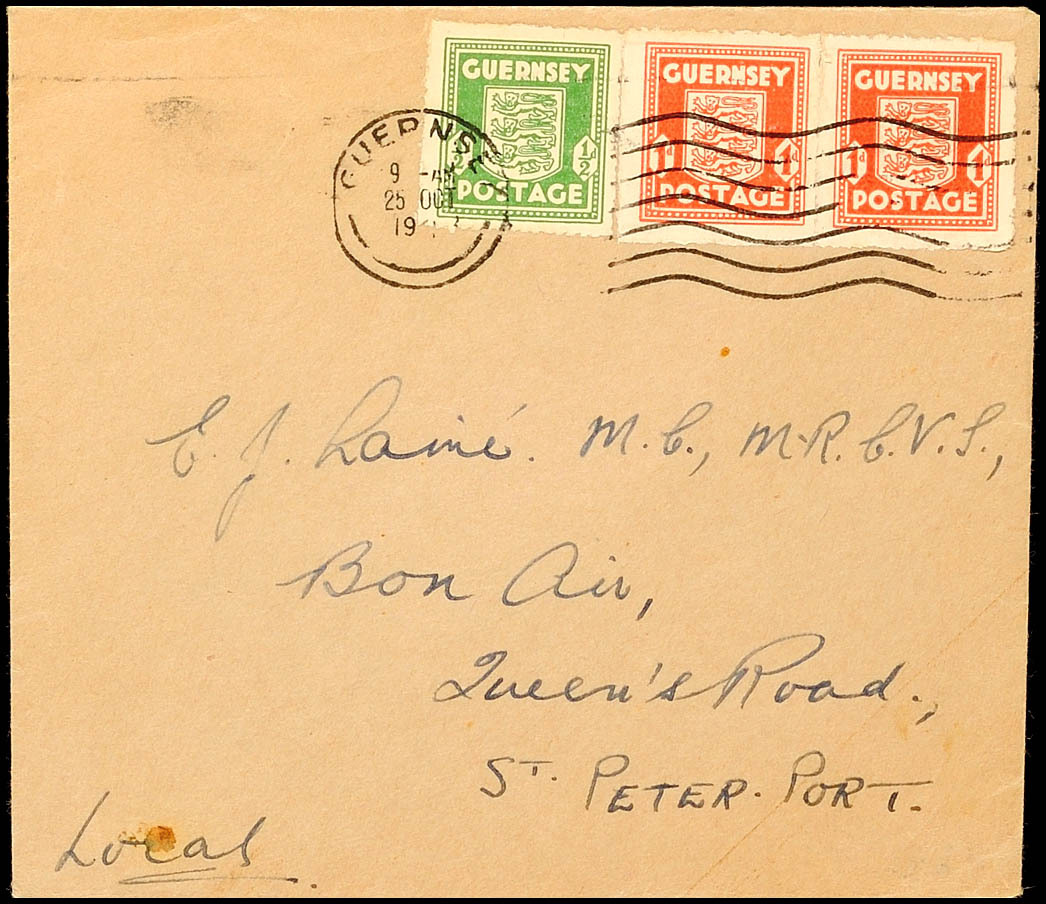 GUERNSEY
½d
POSTAGE
GUERNSEY
1d 1d
POSTAGE
GUERNSEY
1d 1d
POSTAGE
GUERNSE
9 - AM
25 OCT
19
E. J. Lainé. M.C., M.R.C.V.S.,
Bon Air,
Queen's Road.,
ST. PETER. PORT.
Local.